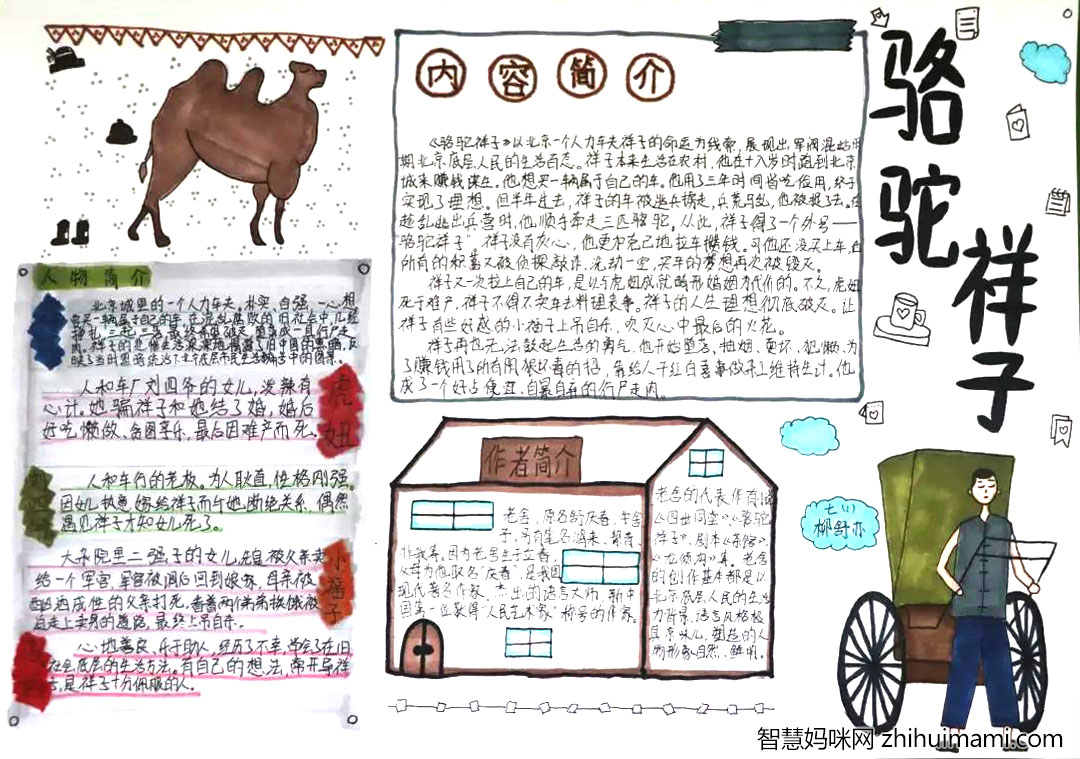 骆驼祥子
内容简介
《骆驼祥子》以北京一个人力车夫祥子的命运为线索,展现出军阀混战时
期北京底层人民的生活百态。祥子本来生活在农村,他在十八岁时跑到北京
城来赚钱谋生。他想买一辆属于自己的车。他用了三年时间省吃俭用,终于
实现了理想。但半年过去,祥子的车被逃兵掳走,兵荒马乱,他被捉了去。在
趁乱逃出兵营时,他顺手牵走三匹骆驼。从此,祥子得了一个外号——
骆驼祥子”祥子没有灰心,他更加克己地拉车攒钱。可他还没买上车,
所有的积蓄又被侦探敲诈、洗劫一空,买车的梦想再次被毁灭。
祥子又一次拉上自己的车,是以与虎妞成就畸形婚姻为代价的。不久,虎妞
死于难产,祥子不得不卖车去料理丧事。祥子的人生理想彻底破灭。让
祥子有些好感的小福子上吊自杀,吹灭心中最后的火花。
祥子再也无法鼓起生活的勇气,他开始堕落、抽烟、耍坏、犯懒。为
了赚钱用了所有用损坏着的招,靠给人干红白喜事做杂工维持生计。他
成了一个好占便宜、自暴自弃的行尸走肉。
人物简介
北京城里的一个人力车夫,朴实、自强,一心想
人和车厂刘四爷的女儿,泼辣有
心计。她骗祥子和她结了婚,婚后
好吃懒做、贪图享乐,最后因难产而死。
虎妞
人和车行的老板。为人耿直,性格刚强。
因女儿执意嫁给祥子而与她断绝关系,偶然
遇见祥子才知女儿死了。
大杂院里二强子的女儿,先是被父亲卖
给一个军官,军官被调后回到娘家,母亲被
酗酒成性的父亲打死,看着两个弟弟挨饿被
迫走上卖身的道路,最终上吊自杀。
小福子
心地善良,乐于助人,经历了不幸,学会了在旧
社会底层的生活方法。有自己的想法,常开导祥
子,是祥子十分佩服的人。
作者简介
老舍,原名舒庆春,字舍
父母为他取名“庆春”,是我国
现代著名作家、杰出的语言大师,新中
国第一位获得“人民艺术家”称号的作家。
老舍的代表作有
《四世同堂》《骆驼
祥子》,剧本《茶馆》、
《龙须沟》等。老舍
的创作基本都是以
北京底层人民的生活
为背景,语言风格极
具京味儿,塑造的人
物形象自然、鲜明。
七(1)
柳舒亦
智慧妈咪网 zhihuimami.com